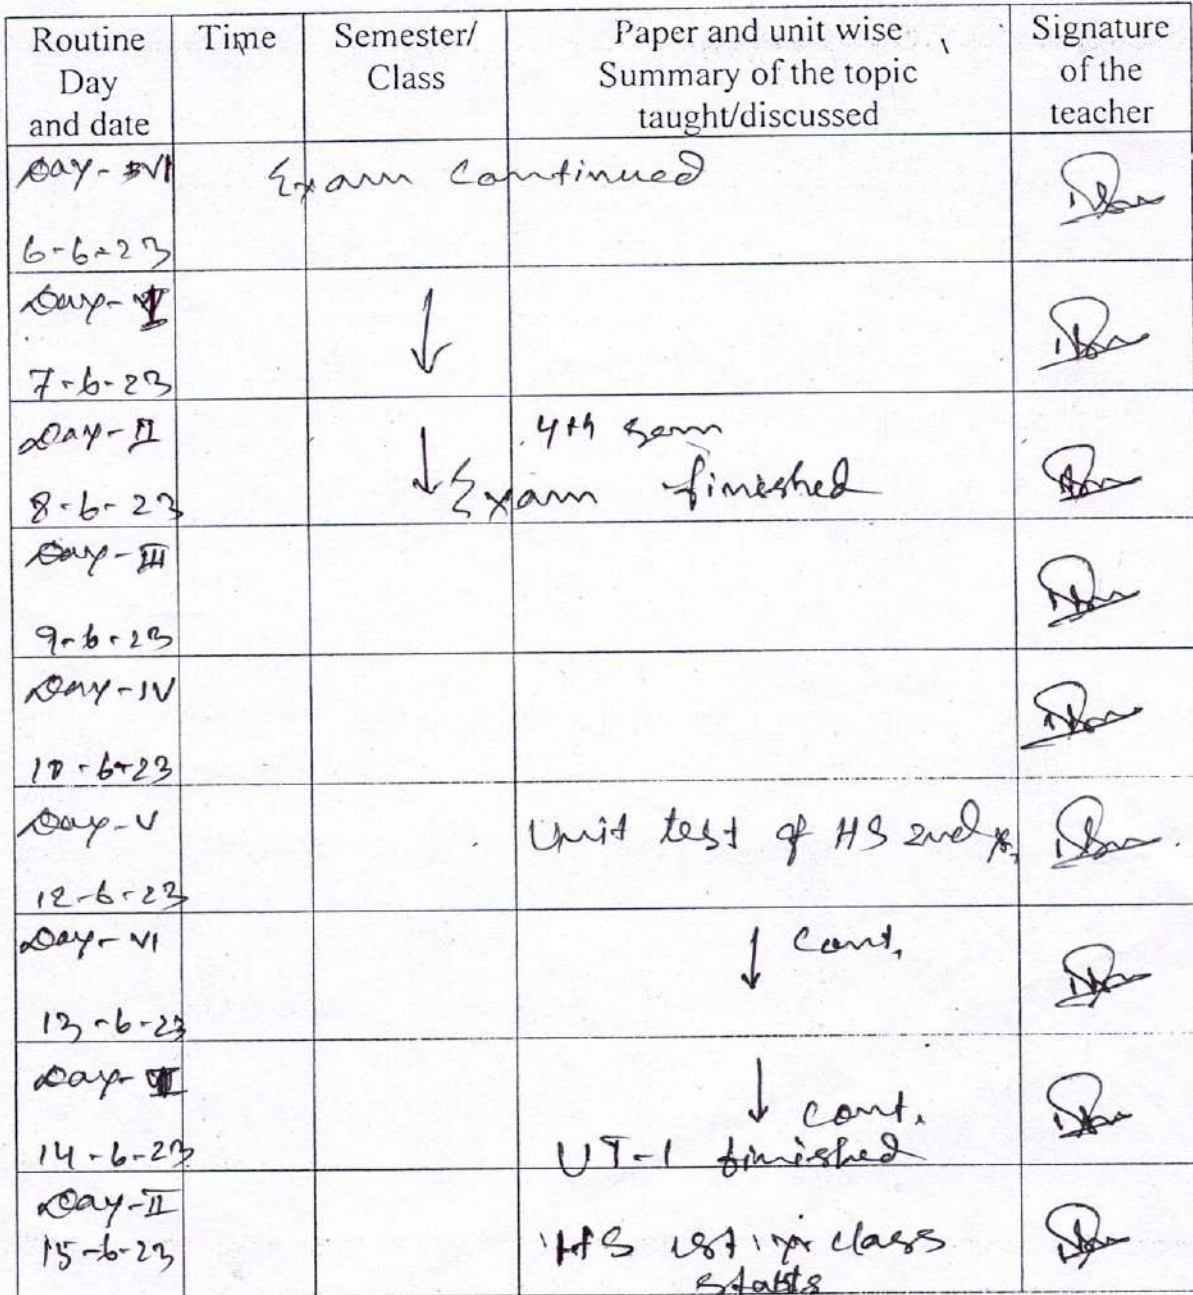 Routine Day and date Time Semester/ Class Paper and unit wise Summary of the topic taught/discussed Signature of the teacher
Day - VI Exam Continued
6-6-23
Day - I ↓
7-6-23
Day - II ↓ 4th sem
8-6-23 Exam finished
Day - III
9-6-23
Day - IV
10-6-23
Day - V Unit test of HS 2nd yr,
12-6-23
Day - VI ↓ Cont.
13-6-23
Day - I ↓ cont.
14-6-23 UT-1 finished
Day - II
15-6-23 HS 1st yr class
starts